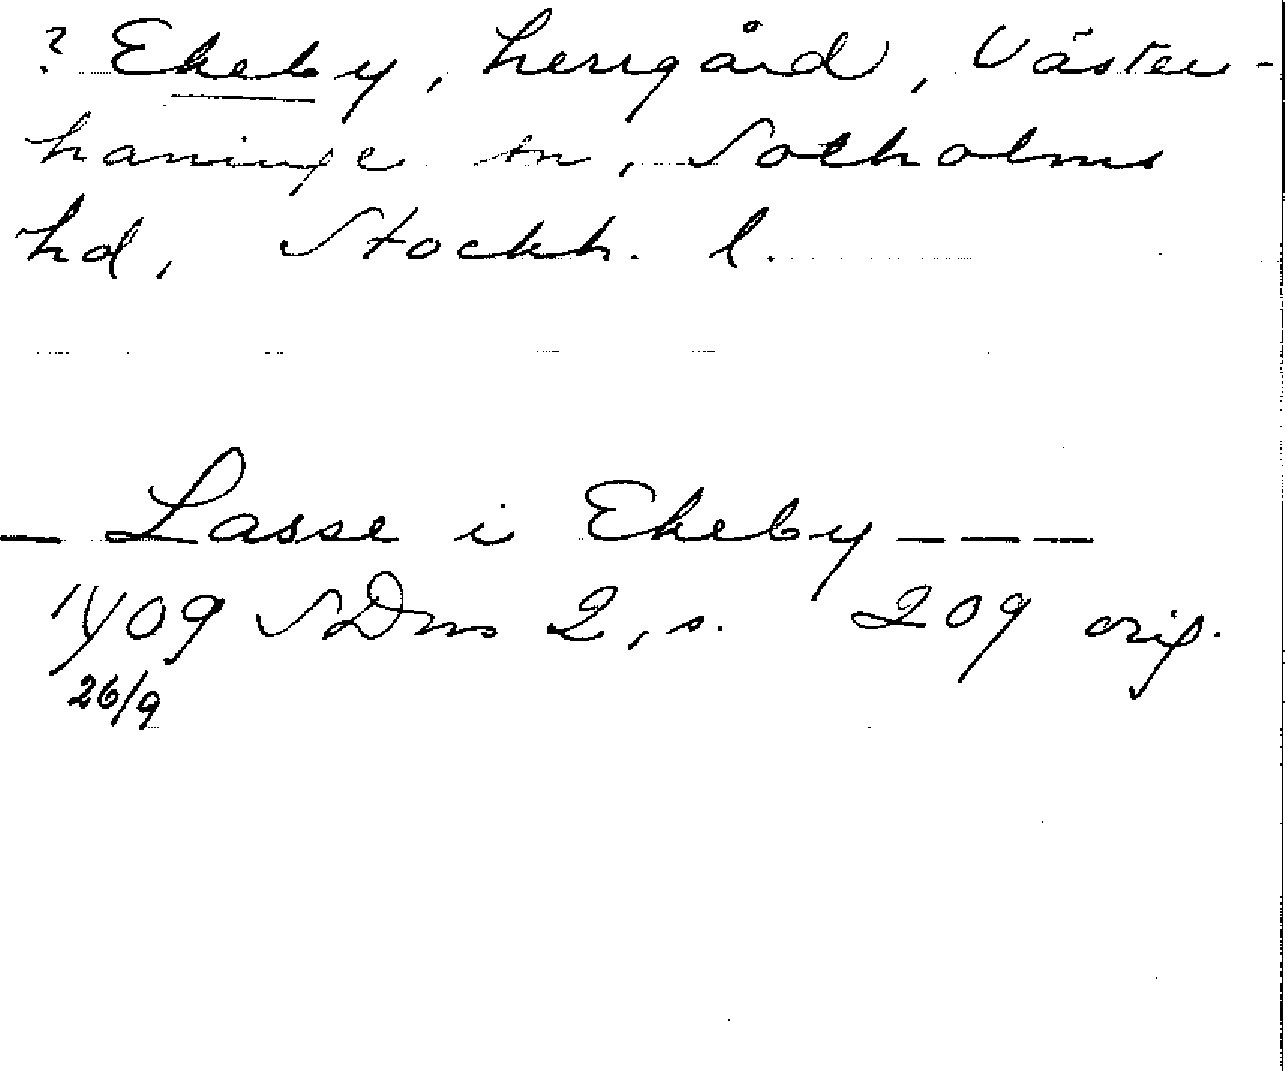 ? Ekeby, herrgård, Väster-
haninge sn, Sotholms
hd, Stockh. l.
— Lasse i Ekeby — — —
1409 SDns 2, s. 209 orig.
26/9